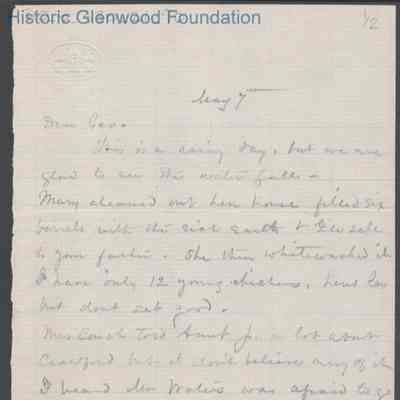 Historic Glenwood Foundation
1/2
May 7
Dear Geo.
This is a rainy day, but we are
glad to see the water fall –
Mary cleaned out hen house filled six
barrels with the rich earth &
to your father. She then whitewashed it
I have only 12 young chickens, hens lay
but dont set good.
Mrs Couch told Aunt J. a lot about
Crawford but I don't believe any of it
I heard Mrs Waters was afraid to go